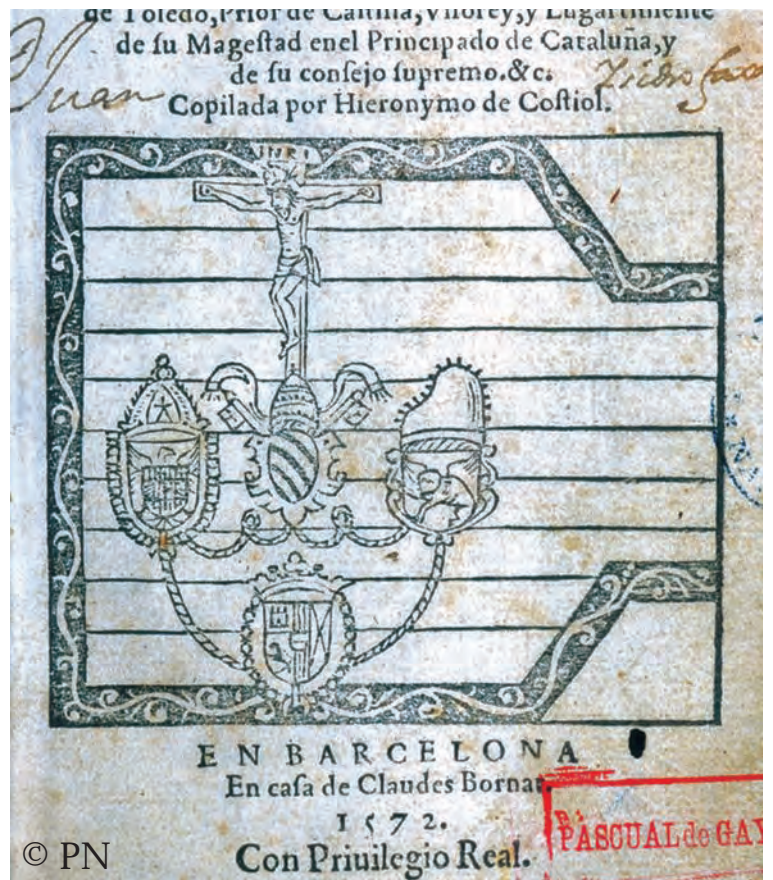 de Toledo, Prior de Castilla, Visorey, y Lugartiniente
de ſu Mageſtad enel Principado de Cataluña, y
de ſu conſejo ſupremo. &c.
Juan
Copilada por Hieronymo de Coſtiol.
INRI
EN BARCELONA
En caſa de Claudes Bornat.
1572.
Con Priuilegio Real.
PASCUAL de GAY
© PN